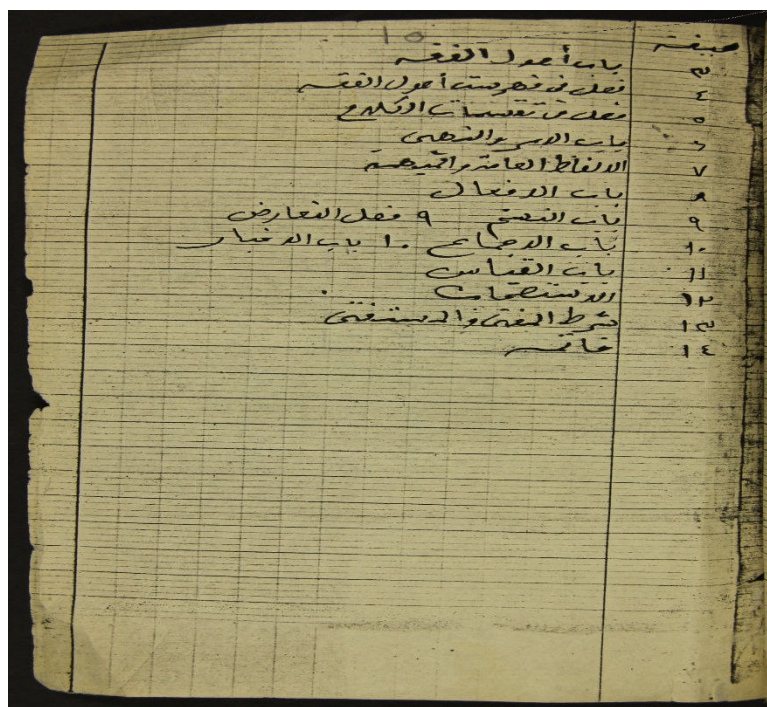 ١٥
صيفة
٣ باب أصول الفقه
٤ فصل في فهرست أصول الفقه
٥ فصل في تقسيمات الكلام
٦ باب الامر والنهي
٧ الالفاظ العامة
٨ باب الافعال
٩ باب النسخ ٩ فصل التعارض
١٠ باب الاجماع ١٠ باب الاخبار
١١ باب القياس
١٢ الاستصحاب
١٣ شرط المفتى والمستفتى
١٤ خاتمه